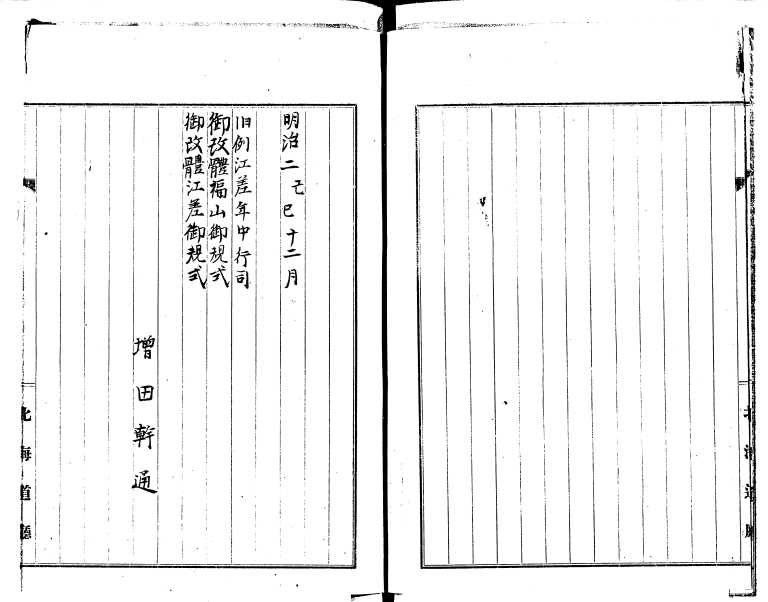 明治二己巳十二月
旧例江差年中行司
御改體福山御規式
御改體江差御規式
増田軒通
北海道廳